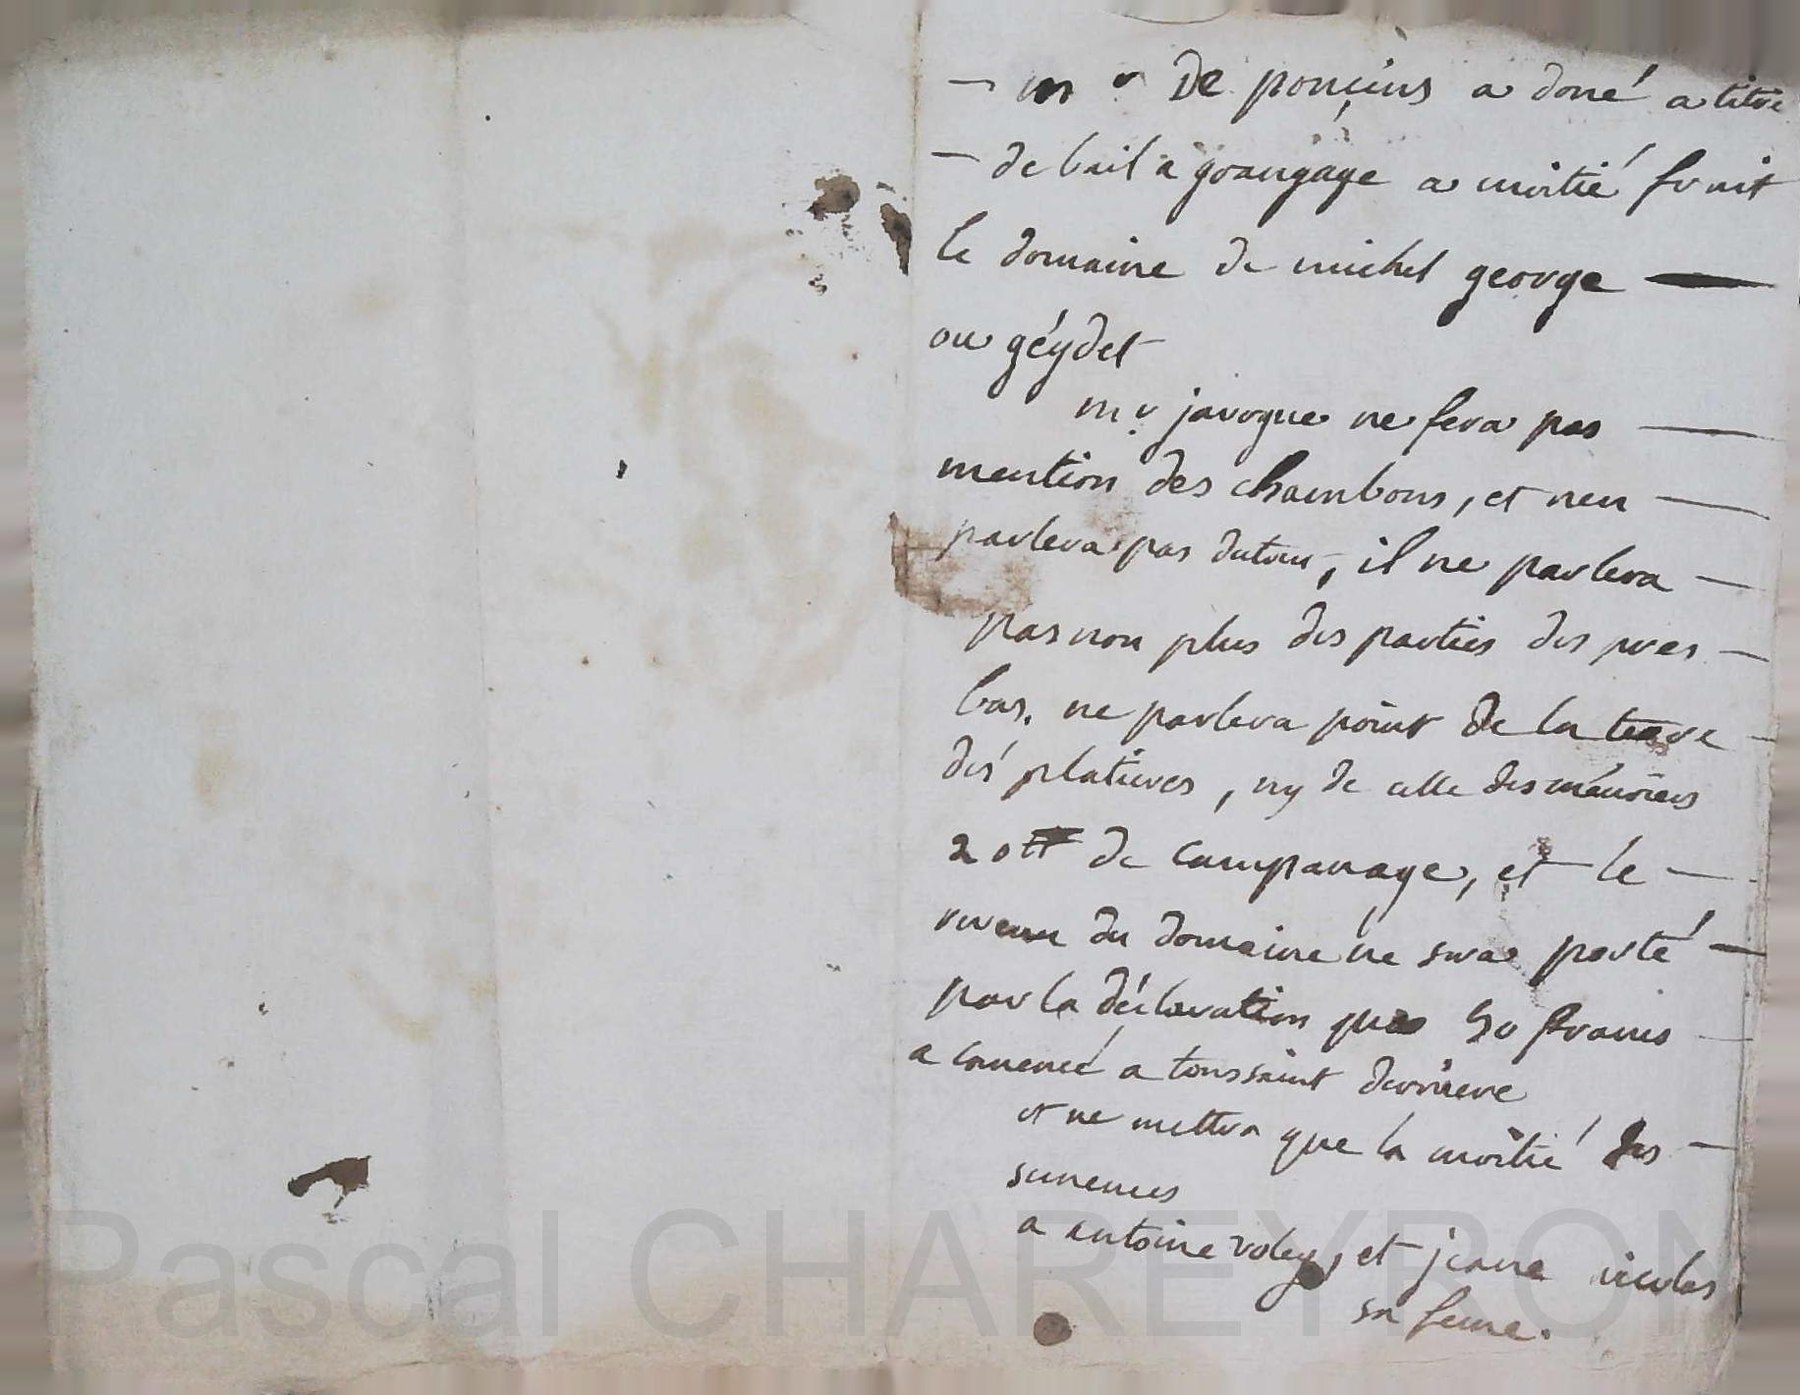 mr De ponçins a doné a titre
de bail a grangage a moitié fruit
le domaine de michel george
ou géydet
mr javogue ne fera pas
mention des chambons, et nen
parlera pas dutou, il ne parlera
pas non plus des parties des pres
bas. ne parlera point de la terre
des platieres, ny de celle des
20 tt de campanage, et le
revenu du domaine ne sera porté
par la déclaration que 50 francs
a comencé a toussaint derniere
et ne mettra que la moitié des
semences
a antoine roley, et jeane nicolas
sa feme.
Pascal CHAREYRON